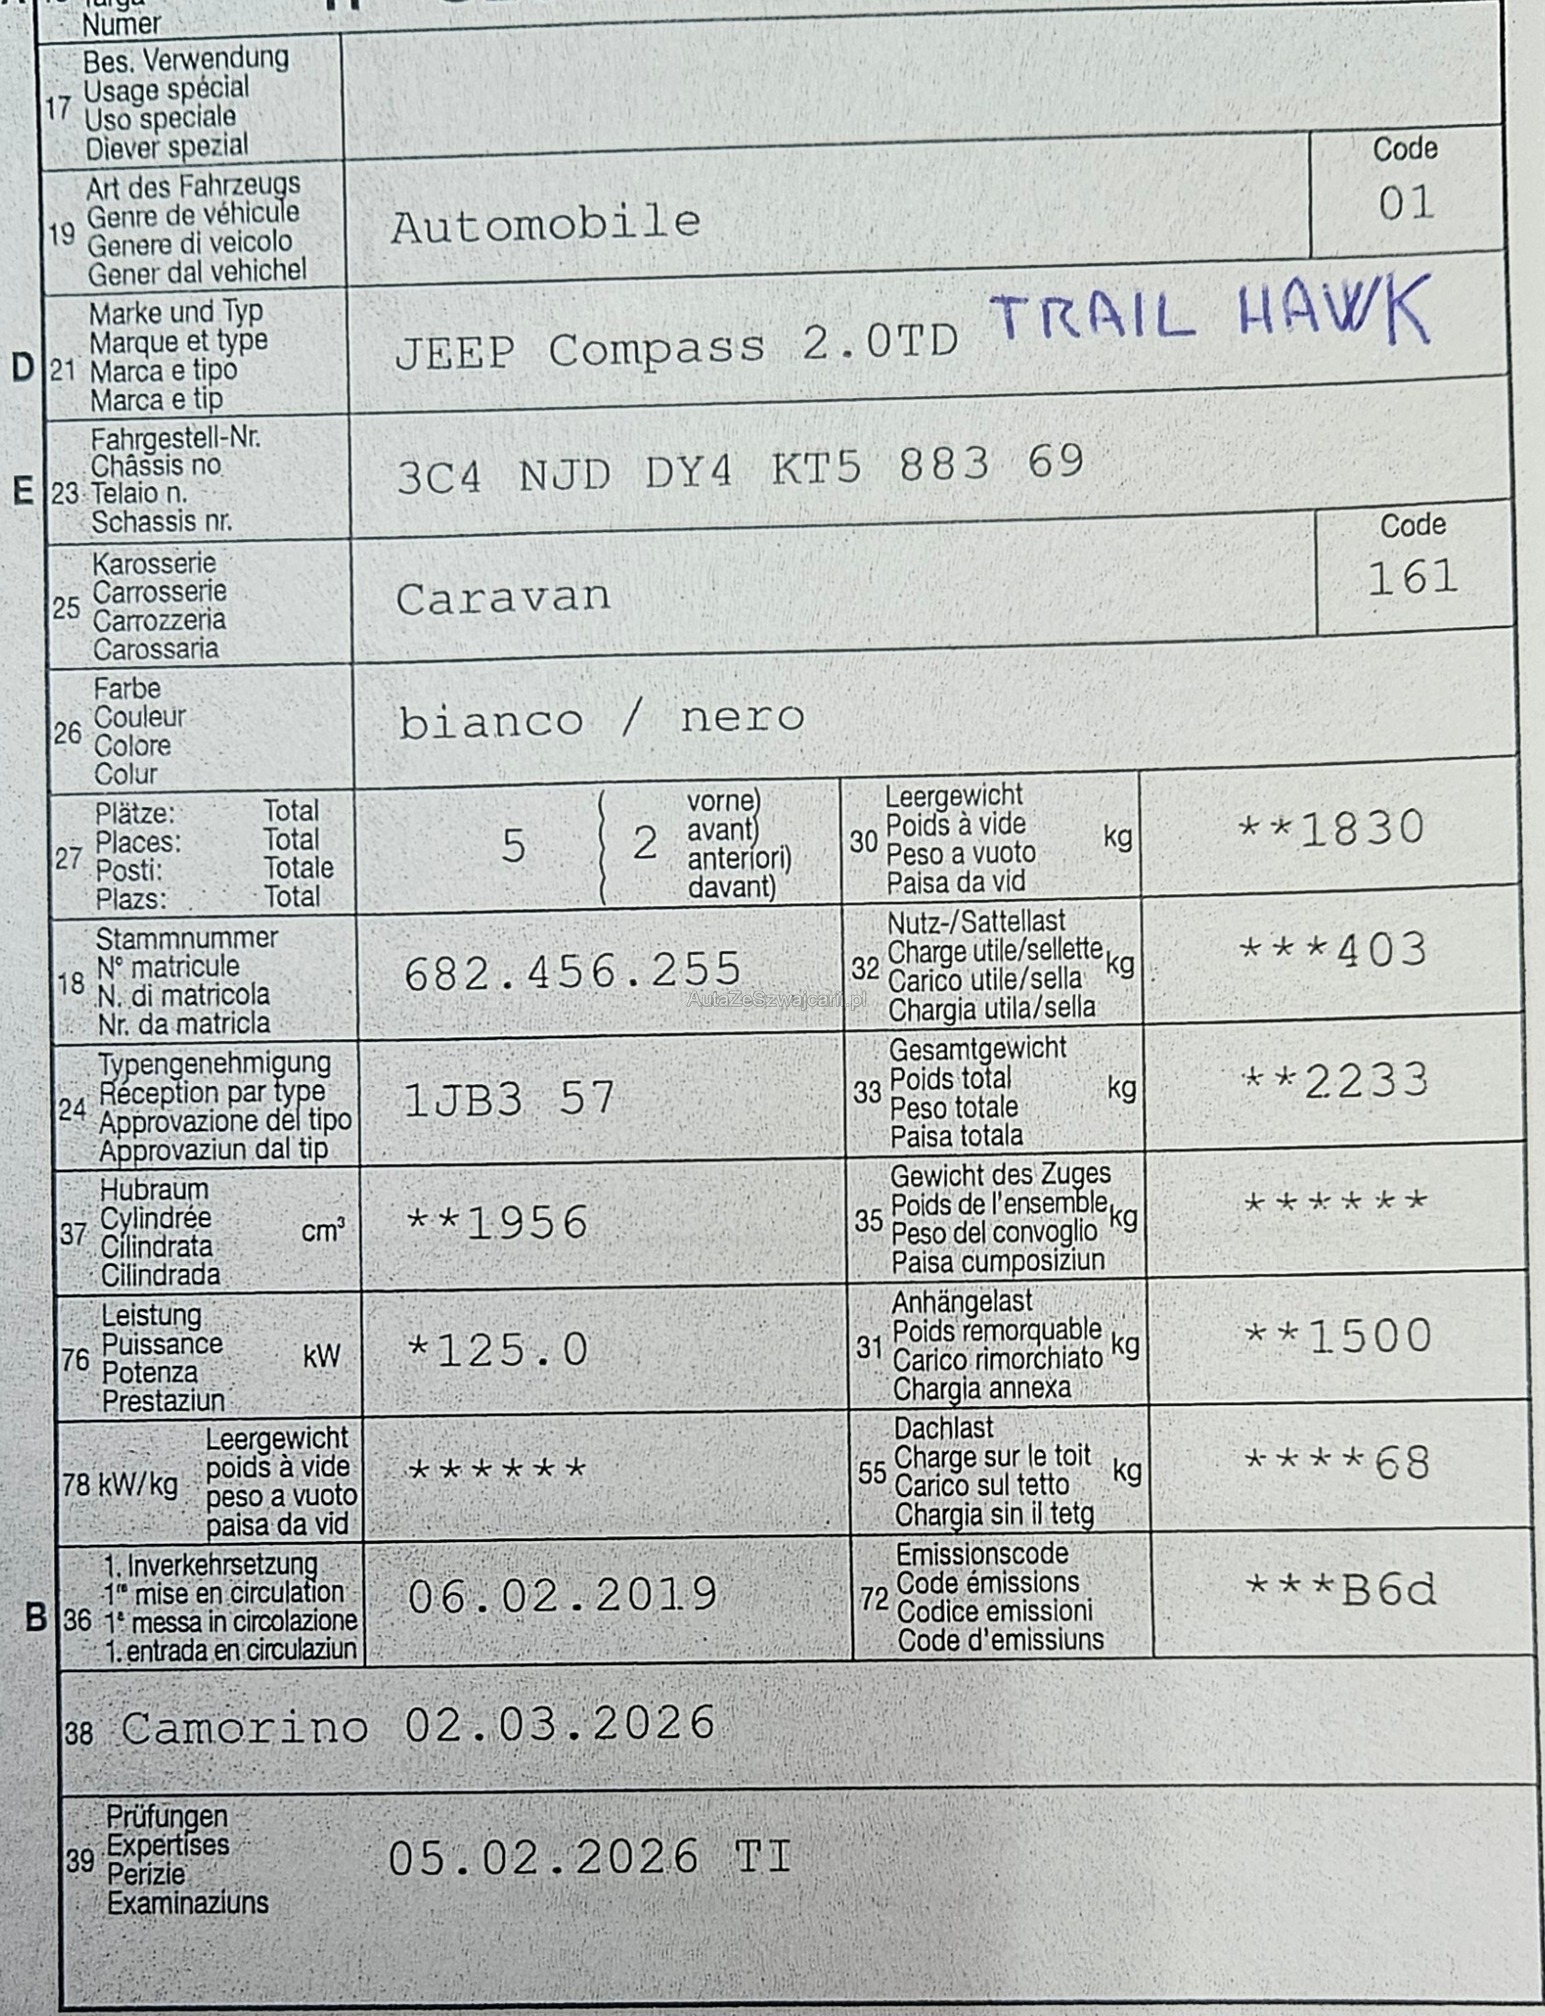 Numer
17 Bes. Verwendung
Usage spécial
Uso speciale
Diever spezial
19 Art des Fahrzeugs
Genre de véhicule
Genere di veicolo
Gener dal vehichel
Automobile
Code
01
D 21 Marke und Typ
Marque et type
Marca e tipo
Marca e tip
JEEP Compass 2.0TD TRAIL HAWK
E 23 Fahrgestell-Nr.
Châssis no
Telaio n.
Schassis nr.
3C4 NJD DY4 KT5 883 69
25 Karosserie
Carrosserie
Carrozzeria
Carossaria
Caravan
Code
161
26 Farbe
Couleur
Colore
Colur
bianco / nero
27 Plätze: Total
Places: Total
Posti: Totale
Plazs: Total
5 ( 2 vorne)
avant)
anteriori)
davant)
30 Leergewicht
Poids à vide
Peso a vuoto
Paisa da vid
kg
**1830
18 Stammnummer
N° matricule
N. di matricola
Nr. da matricla
682.456.255
AutaZeSzwajcarii.pl
32 Nutz-/Sattellast
Charge utile/sellette
Carico utile/sella
Chargia utila/sella
kg
***403
24 Typengenehmigung
Réception par type
Approvazione del tipo
Approvaziun dal tip
1JB3 57
33 Gesamtgewicht
Poids total
Peso totale
Paisa totala
kg
**2233
37 Hubraum
Cylindrée
Cilindrata
Cilindrada
cm³
**1956
35 Gewicht des Zuges
Poids de l'ensemble
Peso del convoglio
Paisa cumposiziun
kg
******
76 Leistung
Puissance
Potenza
Prestaziun
kW
*125.0
31 Anhängelast
Poids remorquable
Carico rimorchiato
Chargia annexa
kg
**1500
78 kW/kg Leergewicht
poids à vide
peso a vuoto
paisa da vid
******
55 Dachlast
Charge sur le toit
Carico sul tetto
Chargia sin il tetg
kg
****68
B 36 1. Inverkehrsetzung
1re mise en circulation
1a messa in circolazione
1. entrada en circulaziun
06.02.2019
72 Emissionscode
Code émissions
Codice emissioni
Code d'emissiuns
***B6d
38 Camorino 02.03.2026
39 Prüfungen
Expertises
Perizie
Examinaziuns
05.02.2026 TI